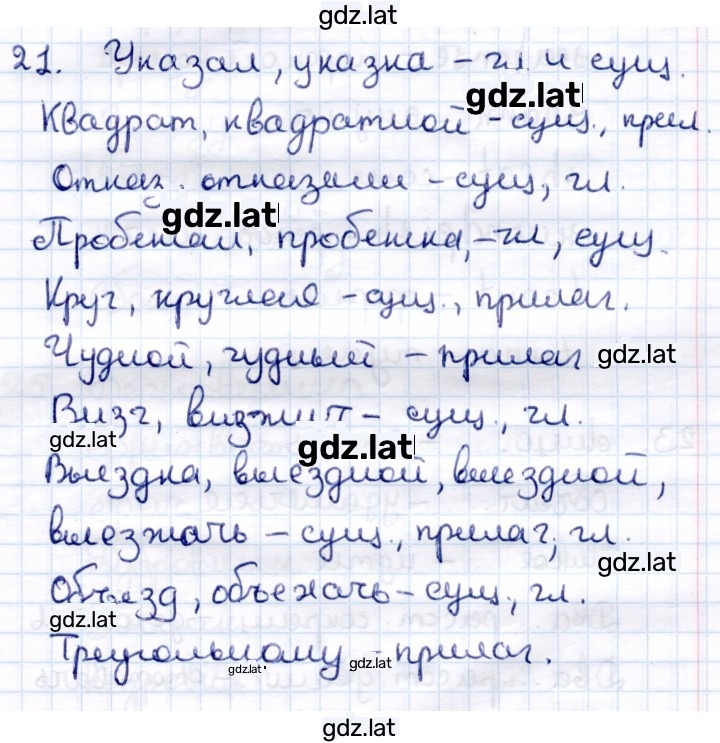 gdz.lat
21. Указал, указка – гл. и сущ.
gdz.lat
Квадрат, квадратной – сущ., прил.
Отказ. отказали – сущ., гл.
gdz.lat
Пробежал, пробежка, – гл, сущ.
Круг, круглая – сущ., прилаг.
Чудной, чудный – прилаг gdz.lat
Визг, визжит – сущ., гл.
gdz.lat
gdz.lat
Выездка, выездной, выездной,
выезжать – сущ., прилаг, гл.
gdz.lat
Объезд, объежать – сущ., гл.
gdz.lat
Треугольному – прилаг.
gdz.lat gdz.lat
gdz.lat